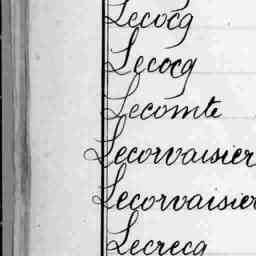 Lecocq
Lecocq
Lecomte
Lecorvaisier
Lecorvaisier
Lecrecq